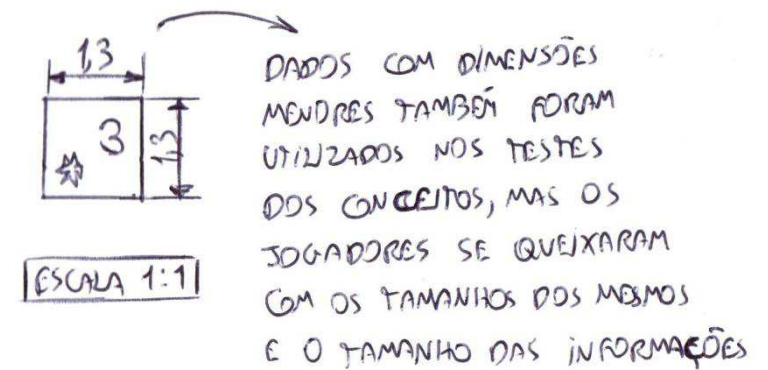 1,3
3
1,3
ESCALA 1:1
DADOS COM DIMENSÕES
MENORES TAMBÉM FORAM
UTILIZADOS NOS TESTES
DOS CONCEITOS, MAS OS
JOGADORES SE QUEIXARAM
COM OS TAMANHOS DOS MESMOS
E O TAMANHO DAS INFORMAÇÕES